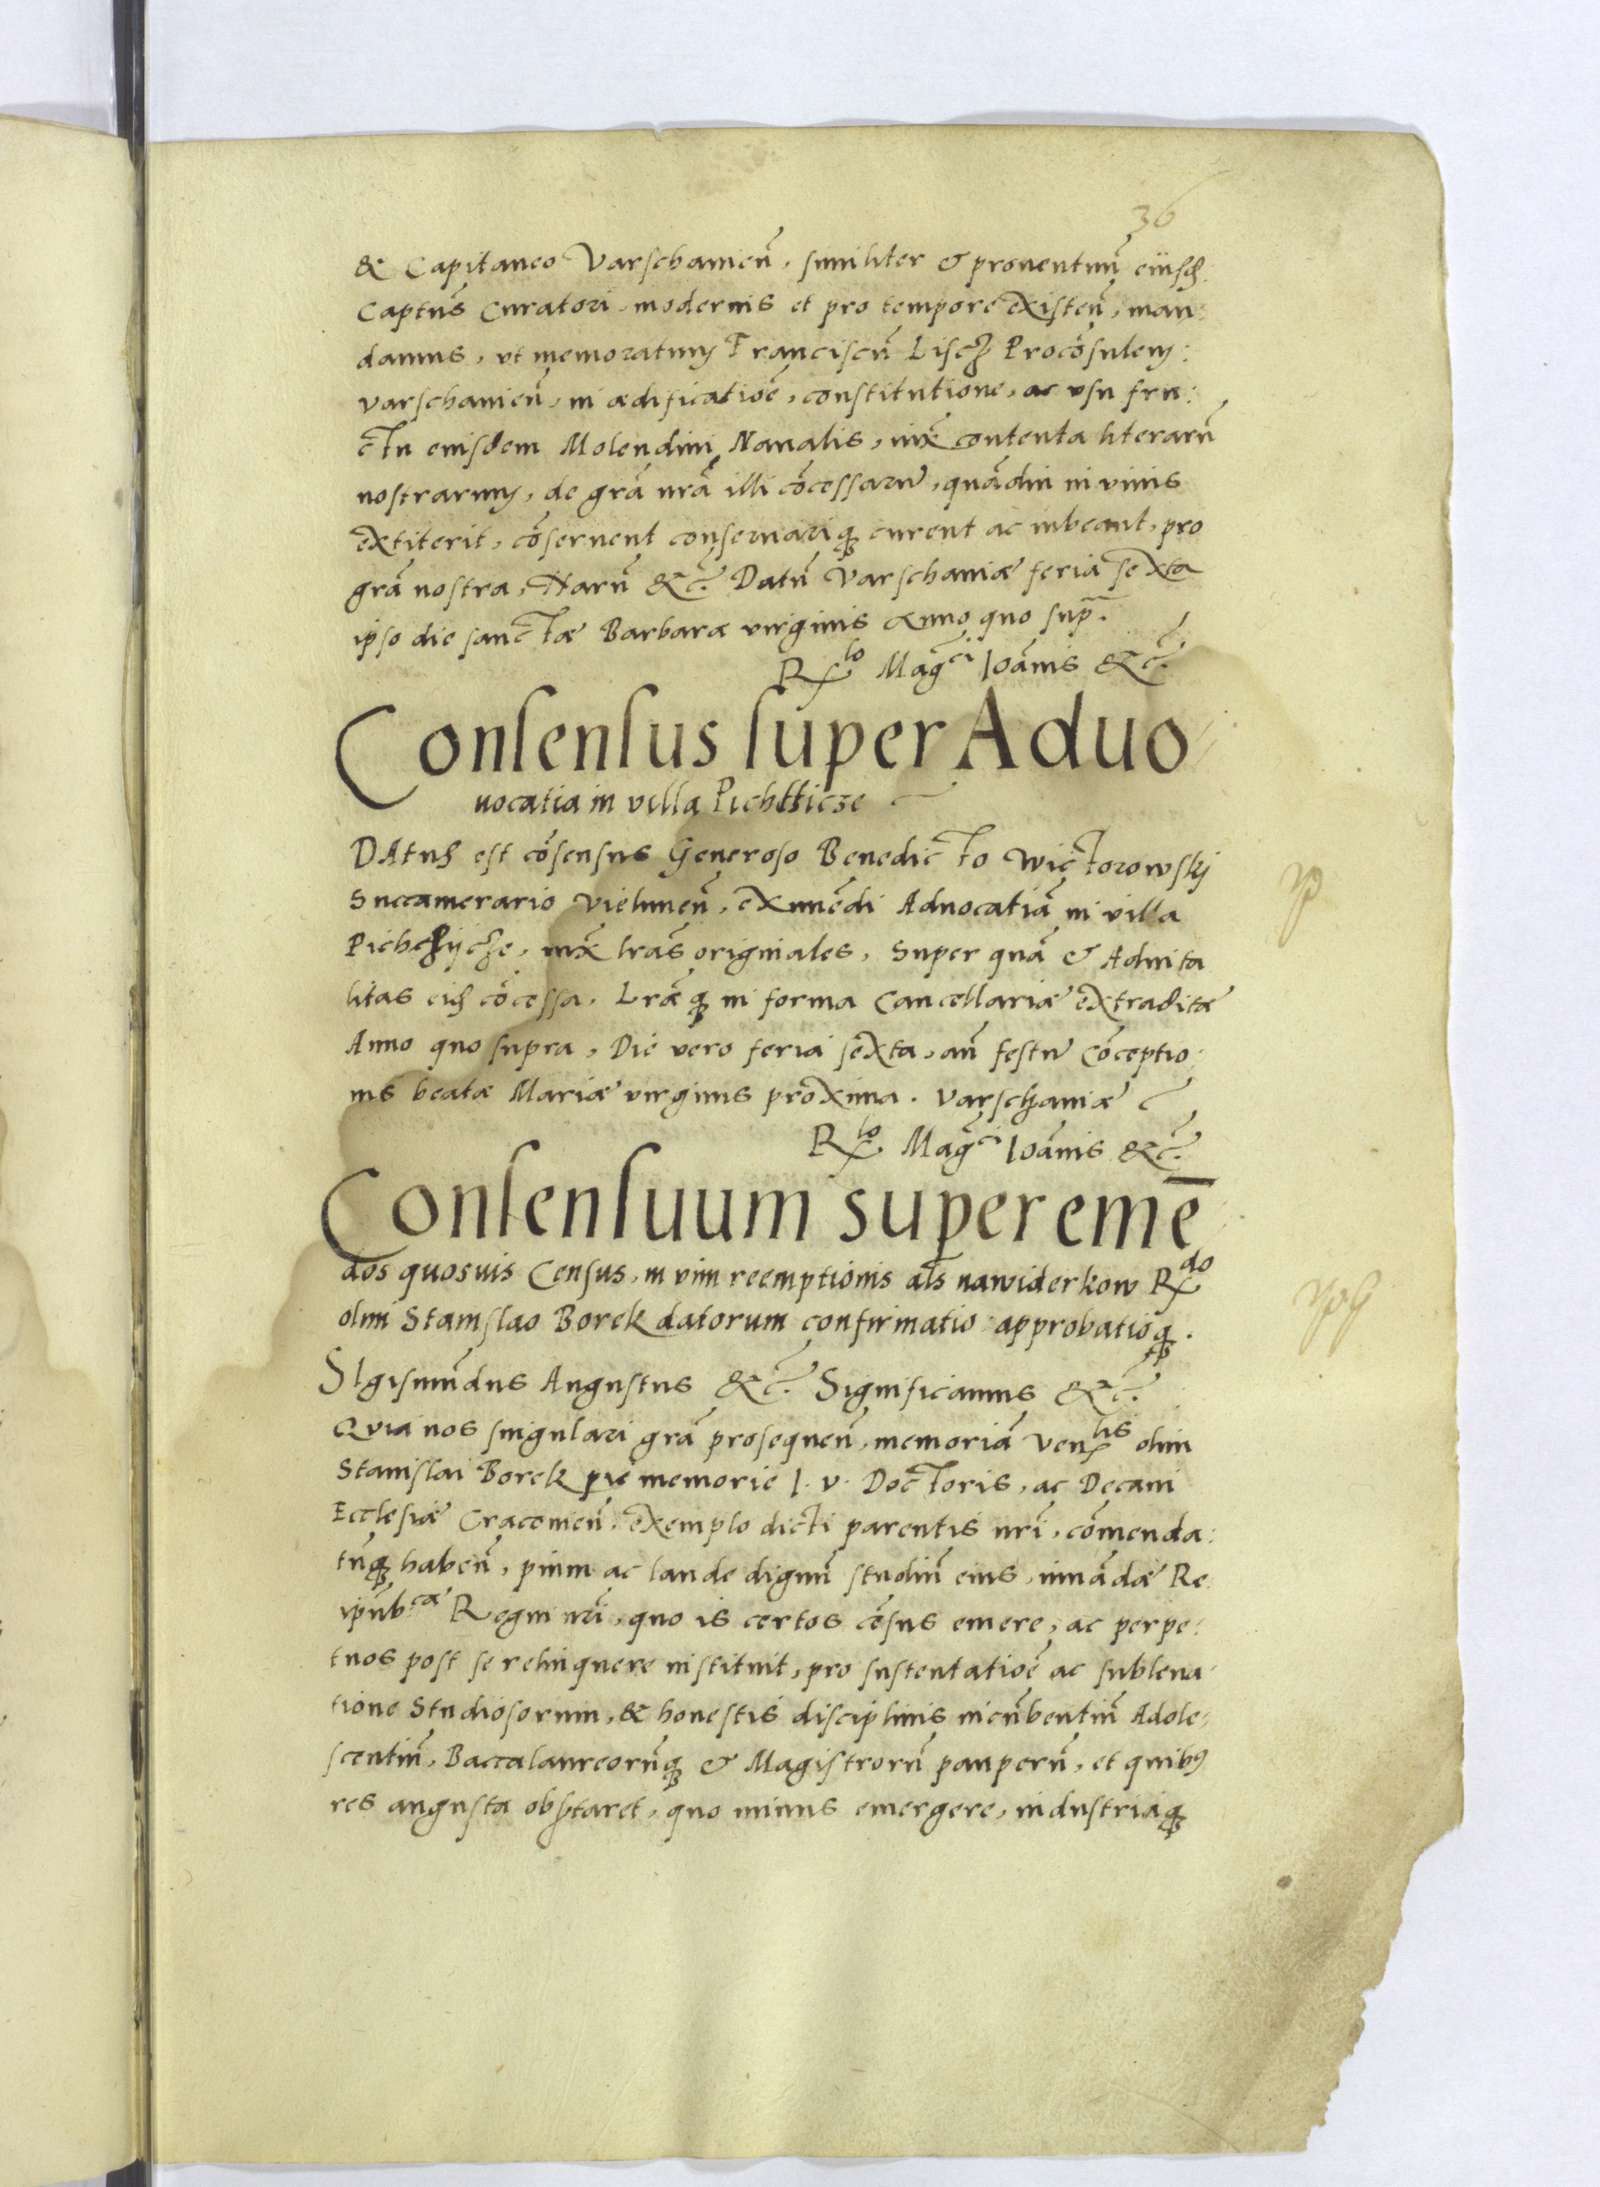 36
& Capitaneo Varschavieñ, similiter & proventuũ eiusđ:
Captus Curatori, modernis et pro tempore existeñ, man:
damus, ut memoratum Franciscũ Liscz Procõsulem:
varschavieñ, in ædificatiõe, constitutione, ac usu fru:
ctu eiusdem Molendini Navalis, iux̃ contenta literarũ
nostrarum, de grã nrã illi cõcessarũ, quãdiu in vivis
extiterit, cõservent conservariq̃ curent ac iubeant, pro
grã nostra, Harũ &c̃. Datũ Varschaviæ feria sexta
ipso die sanctæ Barbaræ virginis Anno quo supᷓ.
Rx̃lo Mag̃ci Ioãnis &c̃.
Consensus super Aduo
uocatia in villa Pichtticze
DAtus est cõsensus Generoso Benedicto Wictorowskj
Succamerario Vielunẽn, eximẽdi Advocatiã in villa
Pichczijcze, iux̃ lrãs originales, Super quã & Advita
litas eius cõcessa, Lrãeq̃ in forma Cancellariæ extraditæ
Anno quo supra, Die vero feria sexta, añ festũ Cõceptio:
nis beatæ Mariæ virginis proxima. Varschaviæ
Rx̃lo Mag̃ci Ioãnis &c̃.
Consensuum super emẽ
dos quosuis Census, in vim reemptionis als̃ nawiderkow Rx̃do
olim Stanislao Borek datorum confirmatio approbatioq̃.
SIgismũdus Augustus &c̃. Significamus &c̃.
Quia nos singulari grã prosequeñ, memoriã Venlis olim
Stanislai Borek pie memorie I. V. Doctoris, ac Decani
Ecclesiæ Cracovieñ, exemplo dicti parentis nrĩ, cõmenda:
tũq̃ habeñ, pium ac laude dignũ studiũ eius, iuvãdæ Re
ipũbcæ Regni nrĩ, quo is certos cẽsus emere, ac perpe:
tuos post se relinquere instituit, pro sustentatiõe ac subleva
tione Studiosorum, & honestis disciplinis incũbentiũ Adole:
scentiũ, Baccalaureorũq̃ & Magistrorũ pauperũ, et quibus
res angusta obstaret, quo minus emergere, industriãq̃